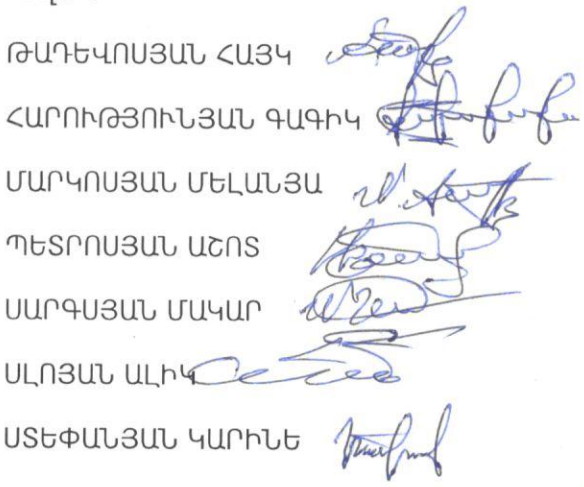 ԹԱԴԵՎՈՍՅԱՆ ՀԱՅԿ
ՀԱՐՈՒԹՅՈՒՆՅԱՆ ԳԱԳԻԿ
ՄԱՐԿՈՍՅԱՆ ՄԵԼԱՆՅԱ
ՊԵՏՐՈՍՅԱՆ ԱՇՈՏ
ՍԱՐԳՍՅԱՆ ՄԱԿԱՐ
ՍԼՈՅԱՆ ԱԼԻԿ
ՍՏԵՓԱՆՅԱՆ ԿԱՐԻՆԵ